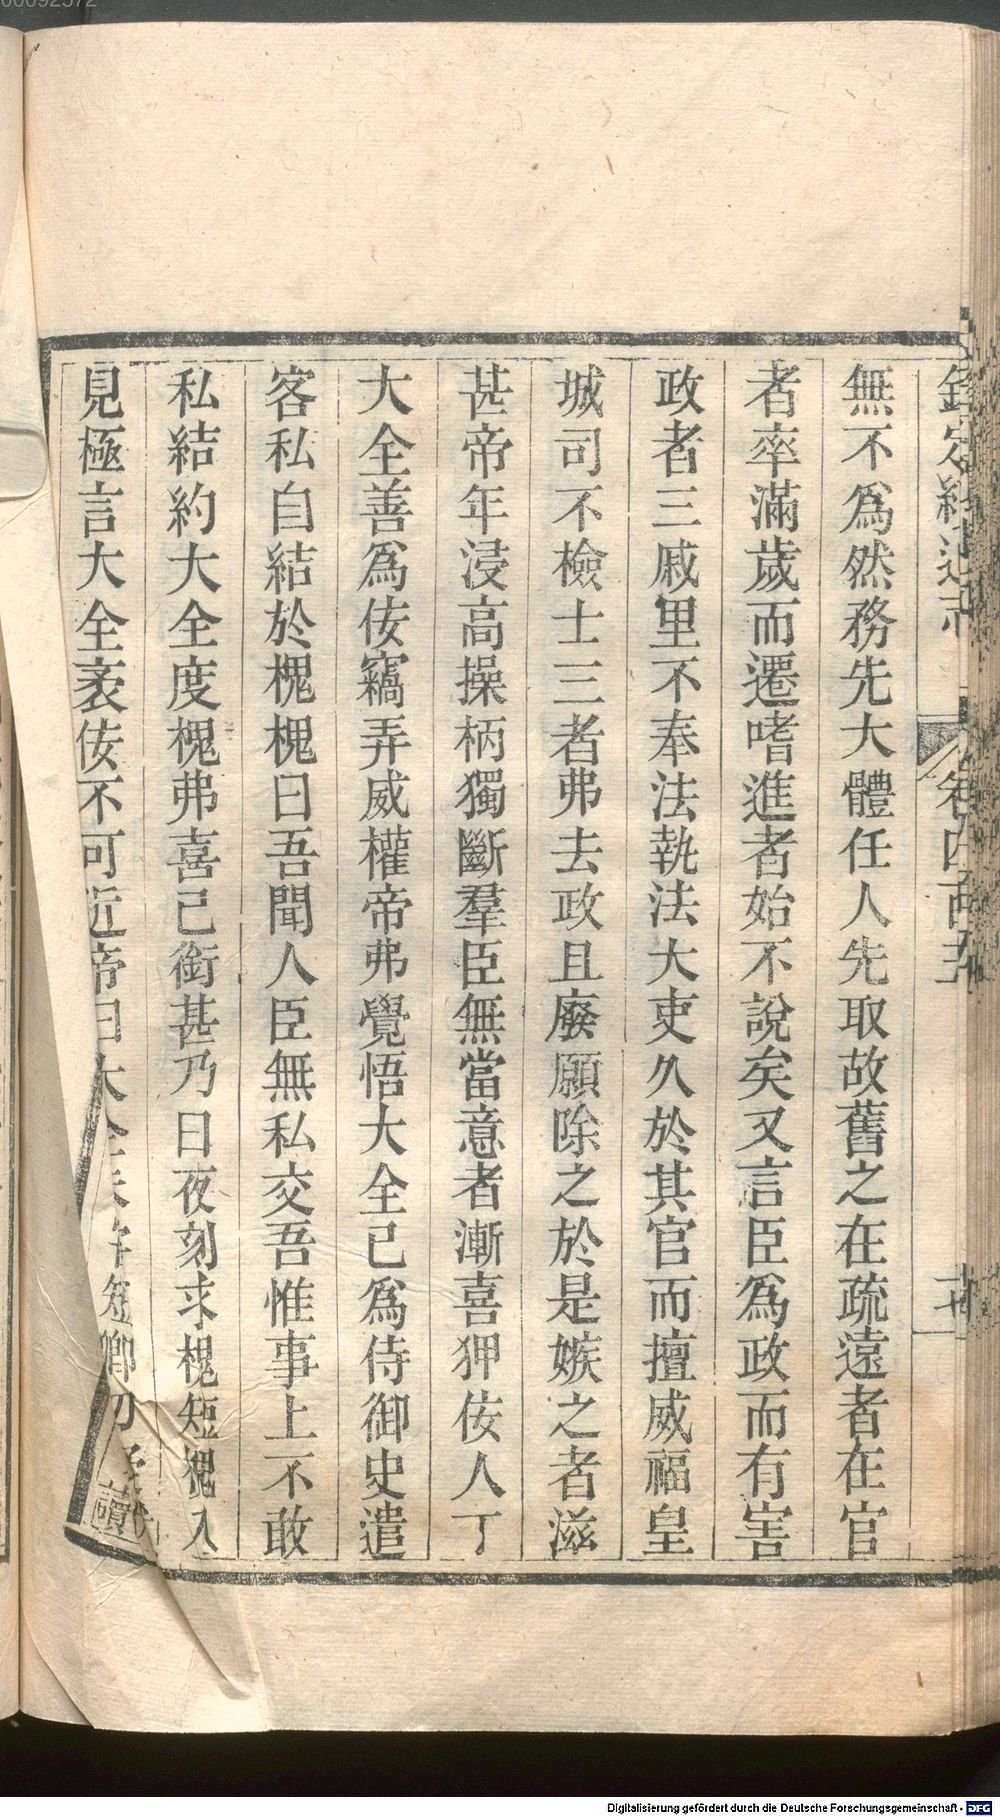 欽定續通志 卷四百 十七
無不爲然務先大體任人先取故舊之在疏遠者在官
者率滿歲而遷嗜進者始不說矣又言臣爲政而有害
政者三戚里不奉法執法大吏久於其官而擅威福皇
城司不檢士三者弗去政且廢願除之於是嫉之者滋
甚帝年浸高操柄獨斷羣臣無當意者漸喜狎佞人丁
大全善爲佞竊弄威權帝弗覺悟大全已爲侍御史遣
客私自結於槐槐曰吾聞人臣無私交吾惟事上不敢
私結約大全度槐弗喜己銜甚乃日夜刻求槐短槐入
見極言大全衺佞不可近帝曰大全未短卿勿
讀
00092572
Digitalisierung gefördert durch die Deutsche Forschungsgemeinschaft - DFG